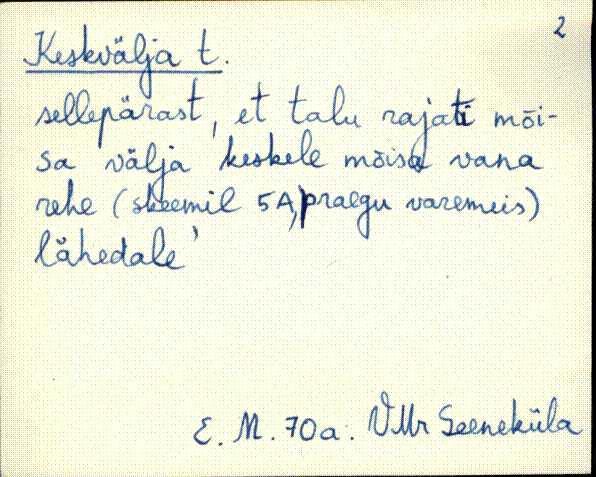 2
Keskvälja t.
sellepärast, et talu rajati mõi-
sa välja keskele mõisa vana
rehe (skeemil 5A, praegu varemeis)
lähedale'
E. M. 70a. VMr Seeneküla